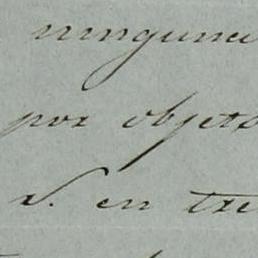 ninguna
por objeto
S. en tre